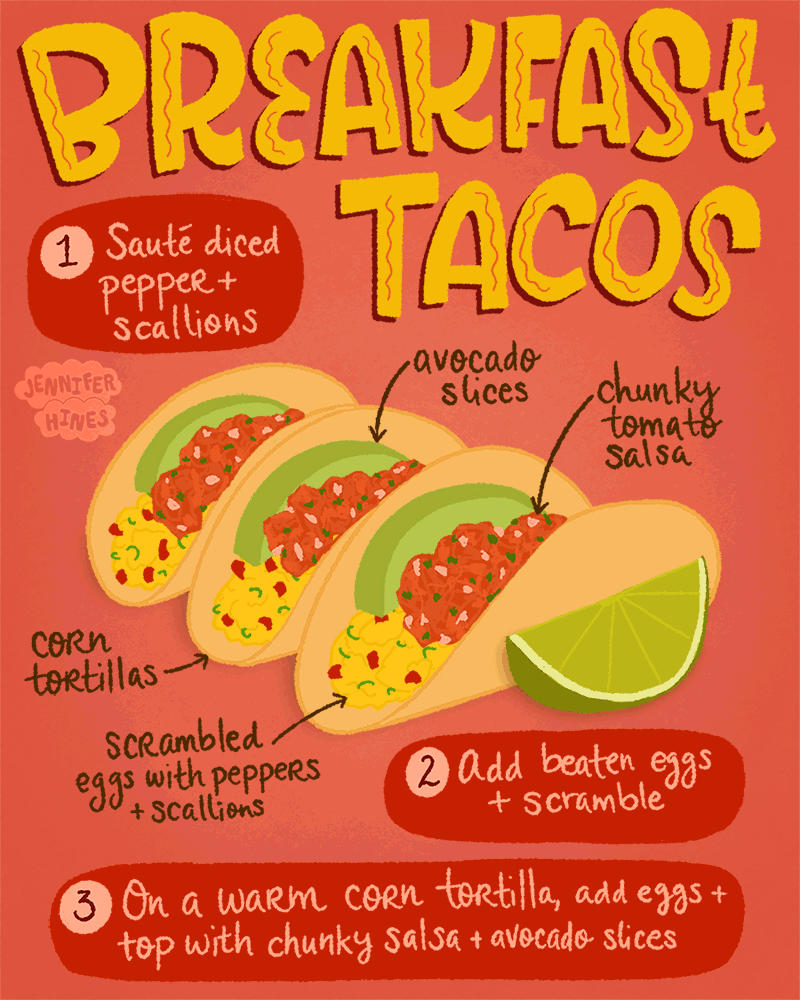 BREAKFAST
TACOS
1 Sauté diced
pepper +
scallions
JENNIFER
HINES
avocado
slices
chunky
tomato
salsa
corn
tortillas
scrambled
eggs with peppers
+ scallions
2 Add beaten eggs
+ scramble
3 On a warm corn tortilla, add eggs +
top with chunky salsa + avocado slices